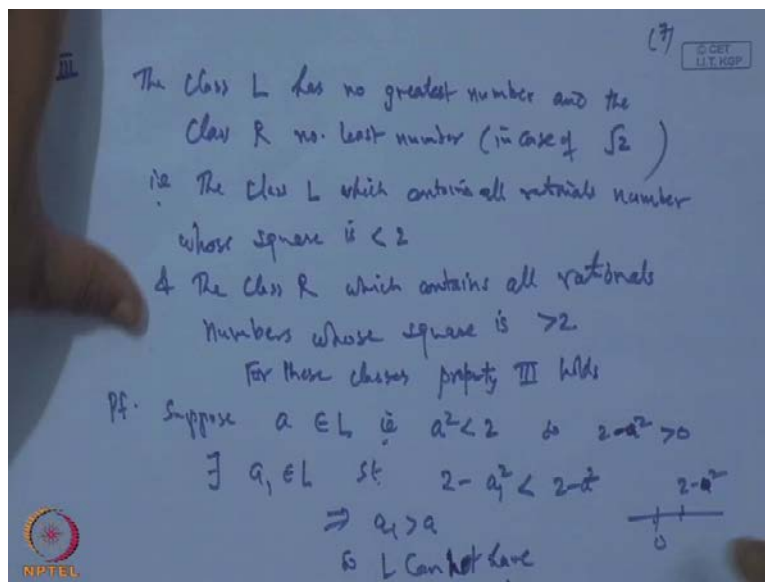 (7)
© CET
I.I.T. KGP
III
The Class L has no greatest number and the
Class R no. least number (in case of √2)
i.e The Class L which contains all rationals number
whose square is < 2
& The Class R which contains all rationals
numbers whose square is >2.
For these classes property III holds
Pf. Suppose a ∈ L i.e a² < 2 so 2-a² >0
∃ a₁ ∈ L st. 2 - a₁² < 2-a²
2-a²
⇒ a₁ > a
0
So L Cannot have
NPTEL